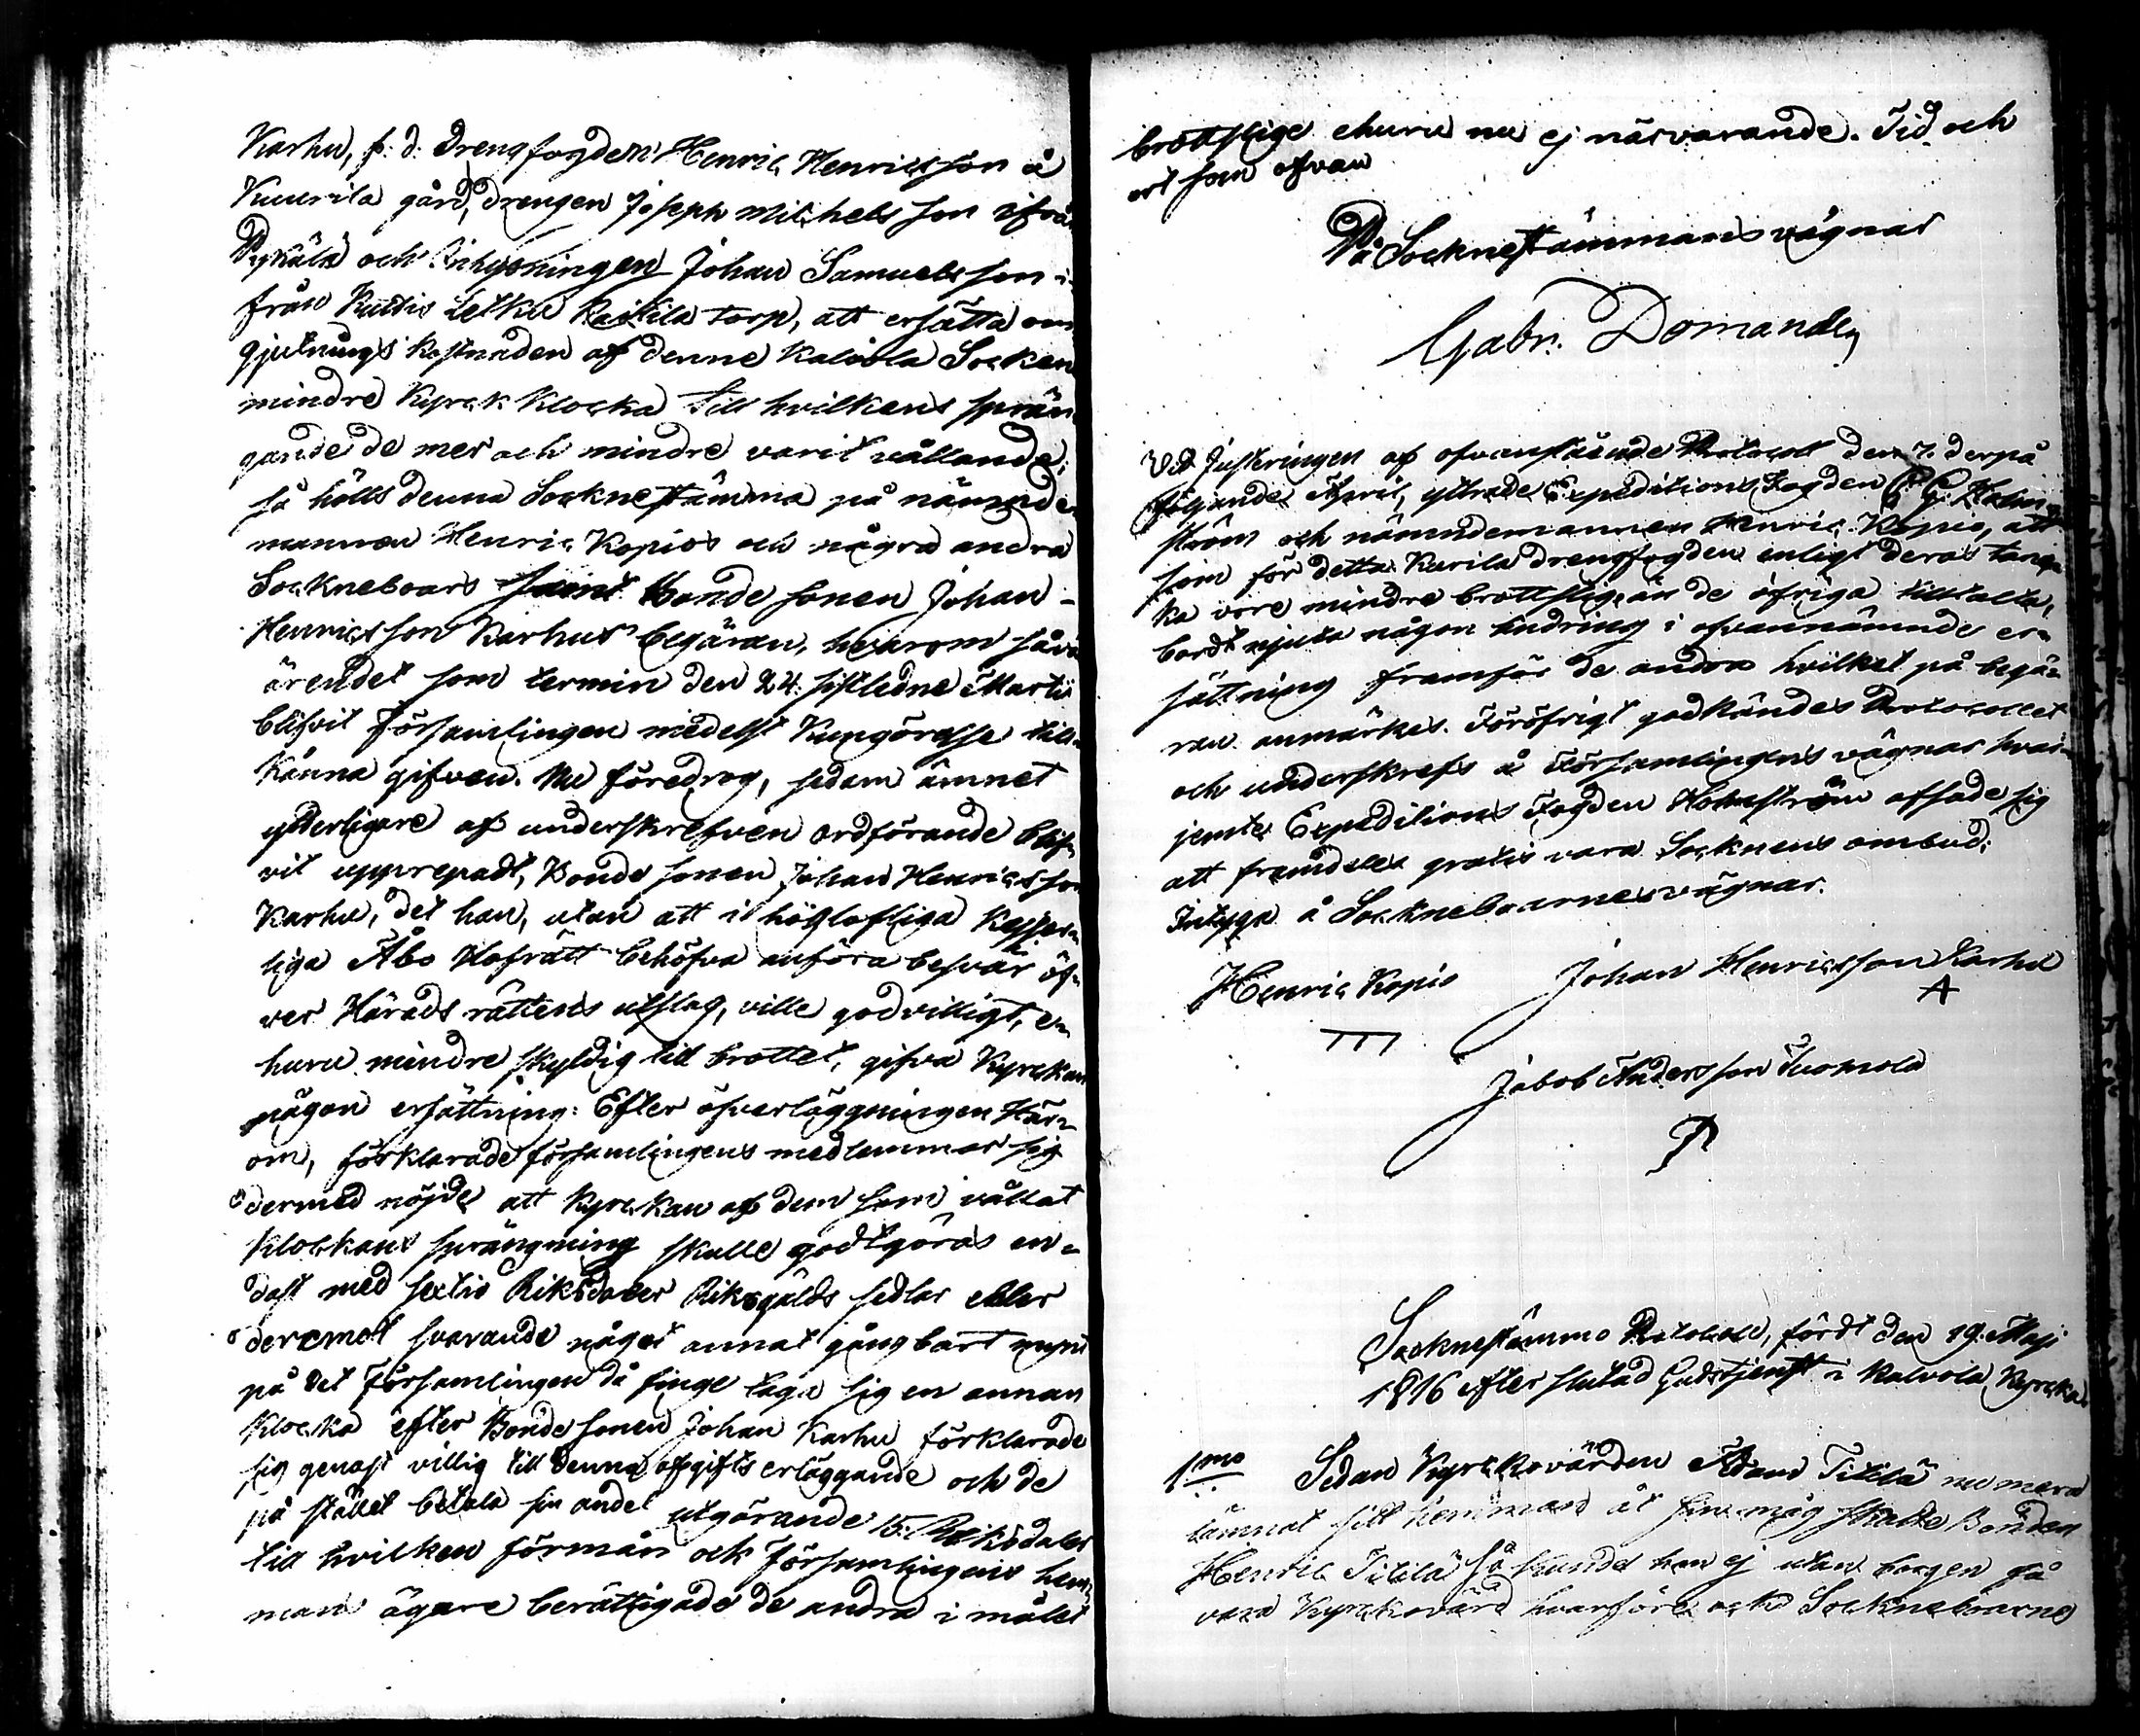 Karhu, f. d. Drengfogden Henric Henricsson å
Kuurila gård, Drengen Joseph Michelsson ifrån
Pykälä och Inhysningen Johan Samuelsson i-
från Kuttis Letku Raikila torp, att ersätta om
gjutnings kostnaden af denne Kalvola Socken
mindre Kyrck Klocka till hvilkens sprän
gande de mer och mindre varit vållande;
så hölls denna Sockne Stämma på nämnde
mannen Henric Kopios och några andra
Sockneboars samt Bonde sonen Johan
Henricsson Karhus begäran, hvarom såväl
ärendet som termin den 24. sistledne Martii
blifvit Församlingen medelst Kungörelse till-
känna gifven. Nu föredrog, sedan ämnet
ytterligare af underskrefven ordförande blif-
vit upprepadt, Bonde sonen Johan Henricsson
Karhu, det han, utan att i höglofliga Kejser-
liga Åbo Hofrätt behöfva anföra besvär öf-
ver Härads rättens utslag, ville godvilligt, e-
huru mindre skyldig till brottet, gifva Kyrckan
någon ersättning: Efter öfverläggningen Här-
om, förklarade församlingens medlemmar sig
dermed nöjde att Kyrckan af dem som vållat
Klockans sprängning skulle godtgöras en-
dast med sextio Riksdaler Riksgälds sedlar eller
deremot svarande något annat gångbart mynt
på det Församlingen då finge laga sig en annan
Klocka efter Bonde sonen Johan Karhu förklarade
sig genast villig till denna afgifts erläggande och de
på stället betala sin andel utgörande 15. Riksdaler
till hvilken förmån ock Församlingens hem-
mans ägare berättigade de andra i målet
brottslige ehuru nu ej närvarande. Tid och
ort som ofvan
På Sockne Stämmans vägnar
Gabr. Domander
Vid Justeringen af ofvanstående Protocoll den 7. derpå
följande April, yttrade Expeditions Fogden Holm
ström och nämndemannen Henric Kopio, att
som för detta Kurila drengfogden enligt deras tanc
ka vore mindre brottslig än de öfriga tilltalta,
bordt njuta någon lindring i ofvannämnde er-
sättning framför de andra hvilket på begä-
ran anmärkes. Föröfrigt godkändes Protocollet
och underskrefs å Församlingens vägnar hvar-
jemte Expeditions Fogden Holmström afsade sig
att framdeles gratis vara Socknens ombud;
Intyga å Sockneboarnes vägnar.
Henric Kopio Johan Henricsson Karhu
Jacob Andersson Tuomola
Sockne stämmo Protocoll, fördt den 19. Maji
1816 efter slutad Gudstjenst i Kalvola Kyrcka
1mo Sedan Kyrckovärden Adam Titilä numera
lämnat sitt hemmand åt sin måg Skatte Bonden
Henric Titilä så kunde han ej utan borgen få
vara Kyrckovärd hvarföre ock Sockneboarne